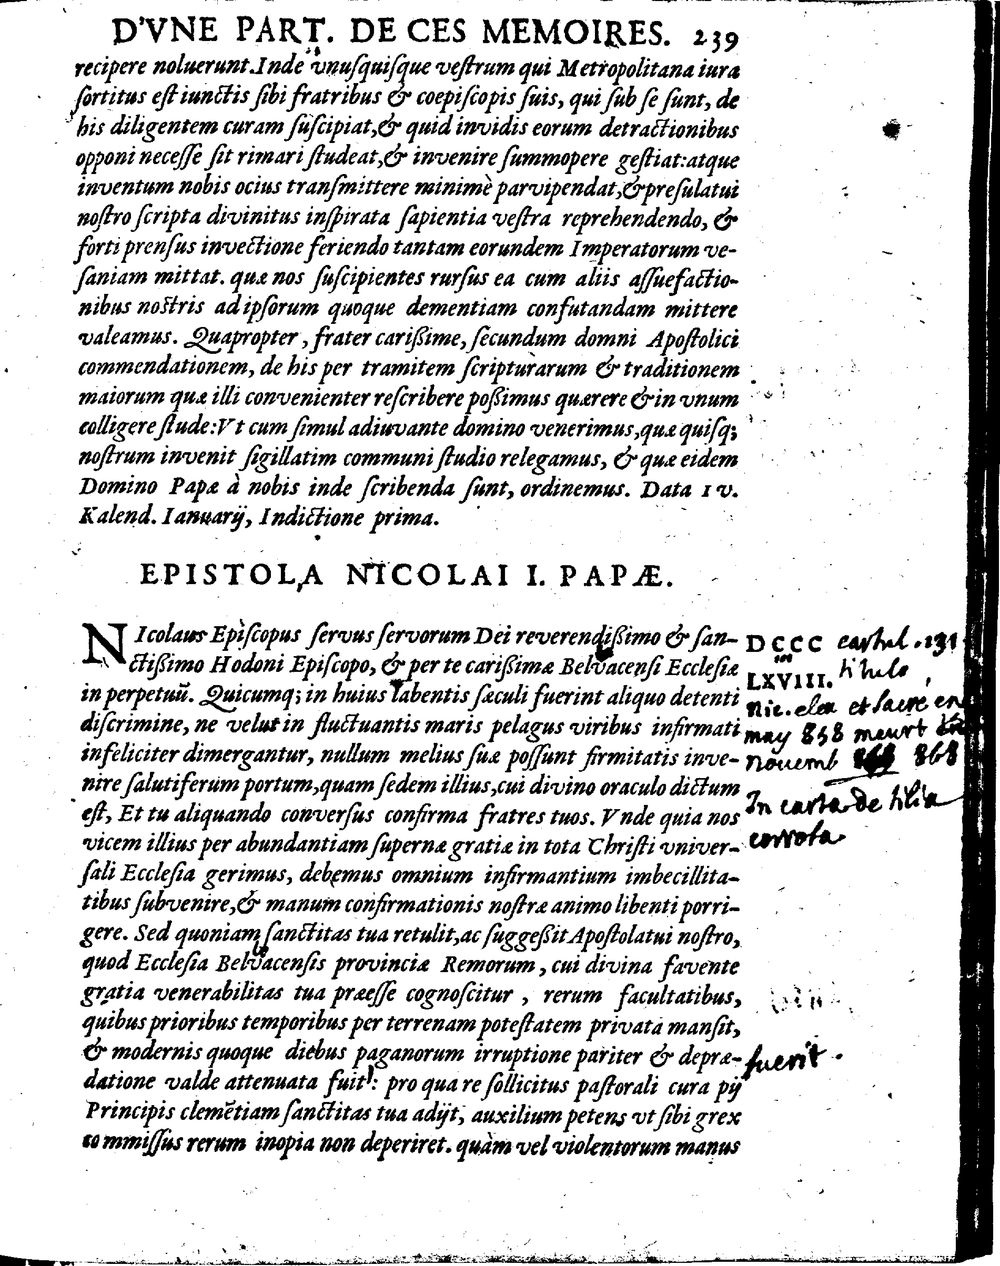 D'VNE PART. DE CES MEMOIRES. 239
recipere noluerunt. Inde vnuſquiſque veſtrum qui Metropolitana iura
ſortitus eſt iunctis ſibi fratribus & coepiſcopis ſuis, qui ſub ſe ſunt, de
his diligentem curam ſuſcipiat, & quid invidis eorum detractionibus
opponi neceſſe ſit rimari ſtudeat, & invenire ſummopere geſtiat: atque
inventum nobis ocius tranſmittere minimè parvipendat, & preſulatui
noſtro ſcripta divinitus inſpirata ſapientia veſtra reprehendendo, &
forti prenſus invectione feriendo tantam eorundem Imperatorum ve-
ſaniam mittat. quæ nos ſuſcipientes rurſus ea cum aliis aſſuefactio-
nibus noſtris ad ipſorum quoque dementiam confutandam mittere
valeamus. Quapropter, frater carißime, ſecundum domni Apoſtolici
commendationem, de his per tramitem ſcripturarum & traditionem
maiorum quæ illi convenienter reſcribere poßimus quærere & in vnum
colligere ſtude: Vt cum ſimul adiuvante domino venerimus, quæ quiſq;
noſtrum invenit ſigillatim communi ſtudio relegamus, & quæ eidem
Domino Papæ à nobis inde ſcribenda ſunt, ordinemus. Data IV.
Kalend. Ianuarij, Indictione prima.
EPISTOLA NICOLAI I. PAPÆ.
NIcolaus Epiſcopus ſervus ſervorum Dei reverendißimo & ſan-
ctißimo Hodoni Epiſcopo, & per te carißimæ Belvacenſi Eccleſiæ
in perpetuū. Quicumq; in huius labentis ſæculi fuerint aliquo detenti
diſcrimine, ne velut in fluctuantis maris pelagus viribus infirmati
infeliciter dimergantur, nullum melius ſuæ poſſunt firmitatis inve-
nire ſalutiferum portum, quam ſedem illius, cui divino oraculo dictum
eſt, Et tu aliquando converſus confirma fratres tuos. Vnde quia nos
vicem illius per abundantiam ſupernæ gratiæ in tota Chriſti vniver-
ſali Eccleſia gerimus, debemus omnium infirmantium imbecillita-
tibus ſubvenire, & manum confirmationis noſtræ animo libenti porri-
gere. Sed quoniam ſanctitas tua retulit, ac ſuggeßit Apoſtolatui noſtro,
quod Eccleſia Belvacenſis provinciæ Remorum, cui divina favente
gratia venerabilitas tua præeſſe cognoſcitur, rerum facultatibus,
quibus prioribus temporibus per terrenam poteſtatem privata manſit,
& modernis quoque diebus paganorum irruptione pariter & depræ-
datione valde attenuata fuit: pro qua re ſollicitus paſtorali cura pij
Principis clemētiam ſanctitas tua adijt, auxilium petens vt ſibi grex
commiſſus rerum inopia non deperiret. quàm vel violentorum manus
DCCC
LXVIII.
Nic. elu et sacré en
may 858 meurt
novemb 868
In carta de
fuerit.